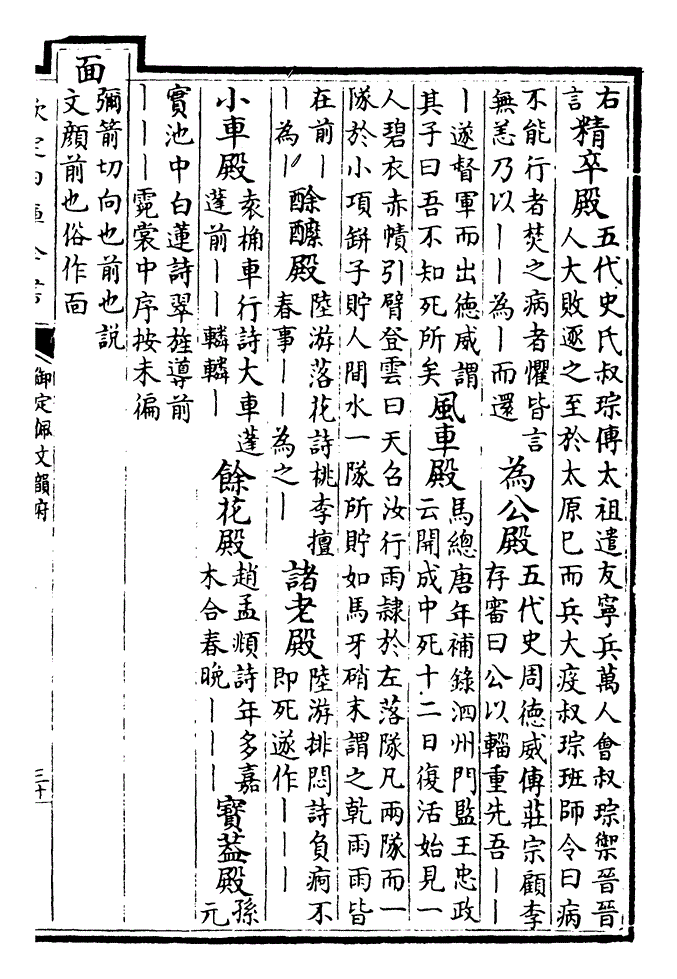 右
言
精卒殿
五代史氏叔琮傳太祖遣友寧兵萬人會叔琮禦晉晉
人大敗逐之至於太原巳而兵大疫叔琮班師令曰病
不能行者焚之病者懼皆言
無恙乃以｜｜為｜而還
為公殿
五代史周德威傳莊宗顧李
存審曰公以輜重先吾｜｜
｜遂督軍而出德威謂
其子曰吾不知死所矣
風車殿
馬總唐年補錄泗州門監王忠政
云開成中死十二日復活始見一
人碧衣赤幘引臂登雲曰天召汝行雨隸於左落隊凡兩隊而一
隊於小項缾子貯人間水一隊所貯如馬牙硝末謂之乾雨雨皆
在前｜
｜為｜
酴醾殿
陸游落花詩桃李擅
春事｜｜為之｜
諸老殿
陸游排悶詩負疴不
即死遂作｜｜｜
小車殿
袁桷車行詩大車蓬
蓬前｜｜轔轔｜
餘花殿
趙孟頫詩年多嘉
木合春晚｜｜｜
寶葢殿
孫
元
實池中白蓮詩翠旌導前
｜｜｜霓裳中序按未徧
面
彌箭切向也前也說
文顏前也俗作面
欽定四庫全書
御定佩文韻府
三十